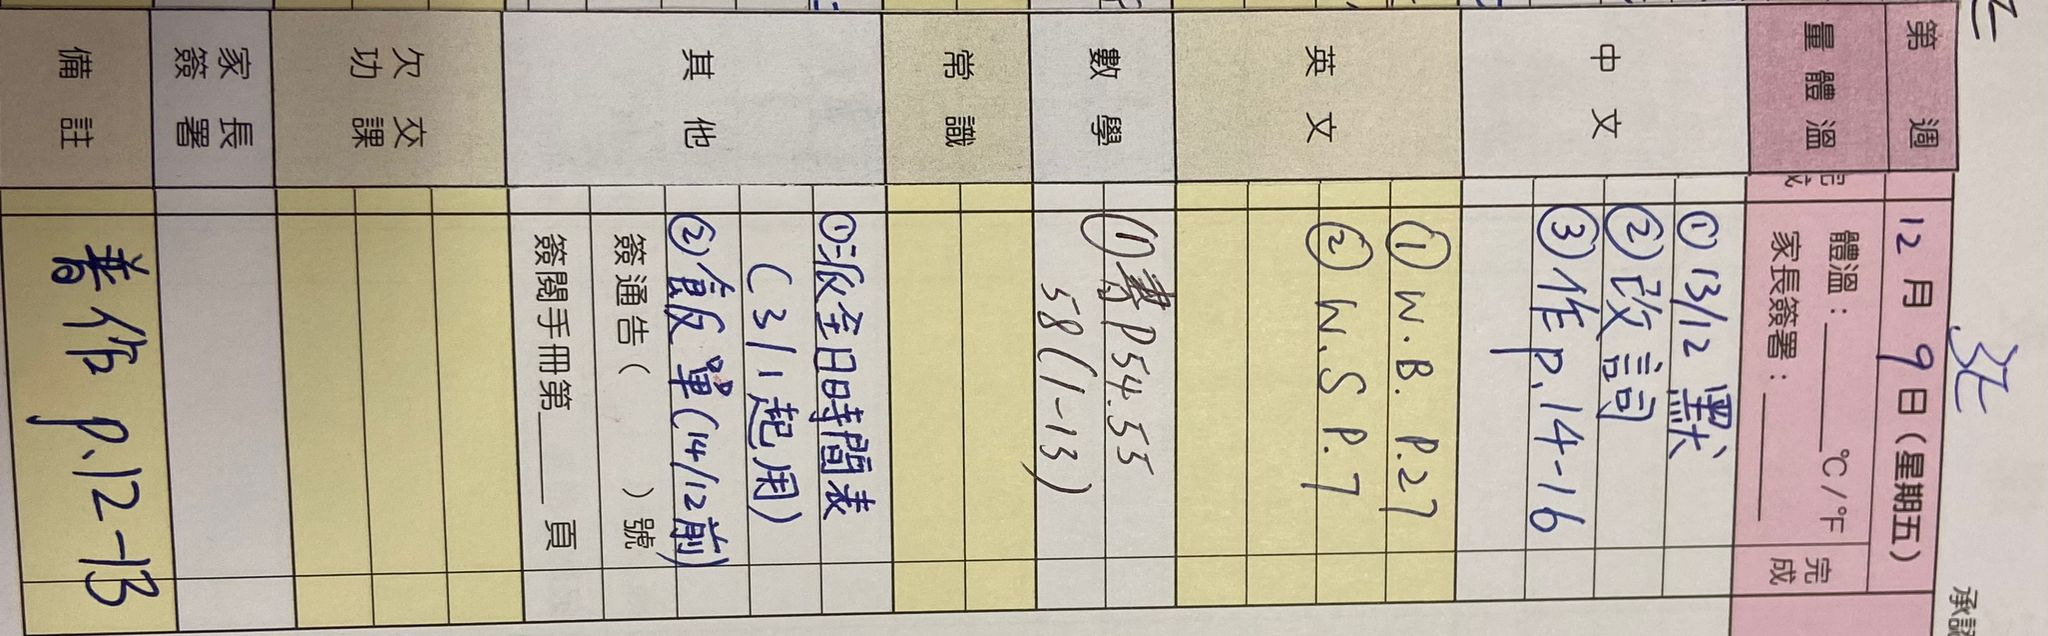 第 週
12月9日(星期五)
量體溫
完成
體溫：______°C/°F
家長簽署：______
完成
中文
① 13/12 默
② 改詞
③ 作 p.14-16
英文
① W.B. P.27
② W.S P.7
數學
① P54.55
58(1-13)
常識
其他
① 派全日時間表
(3/1起用)
② 飯單(14/12前)
簽通告( )號
簽閱手冊第____頁
欠交功課
家長簽署
備註
p.12-13